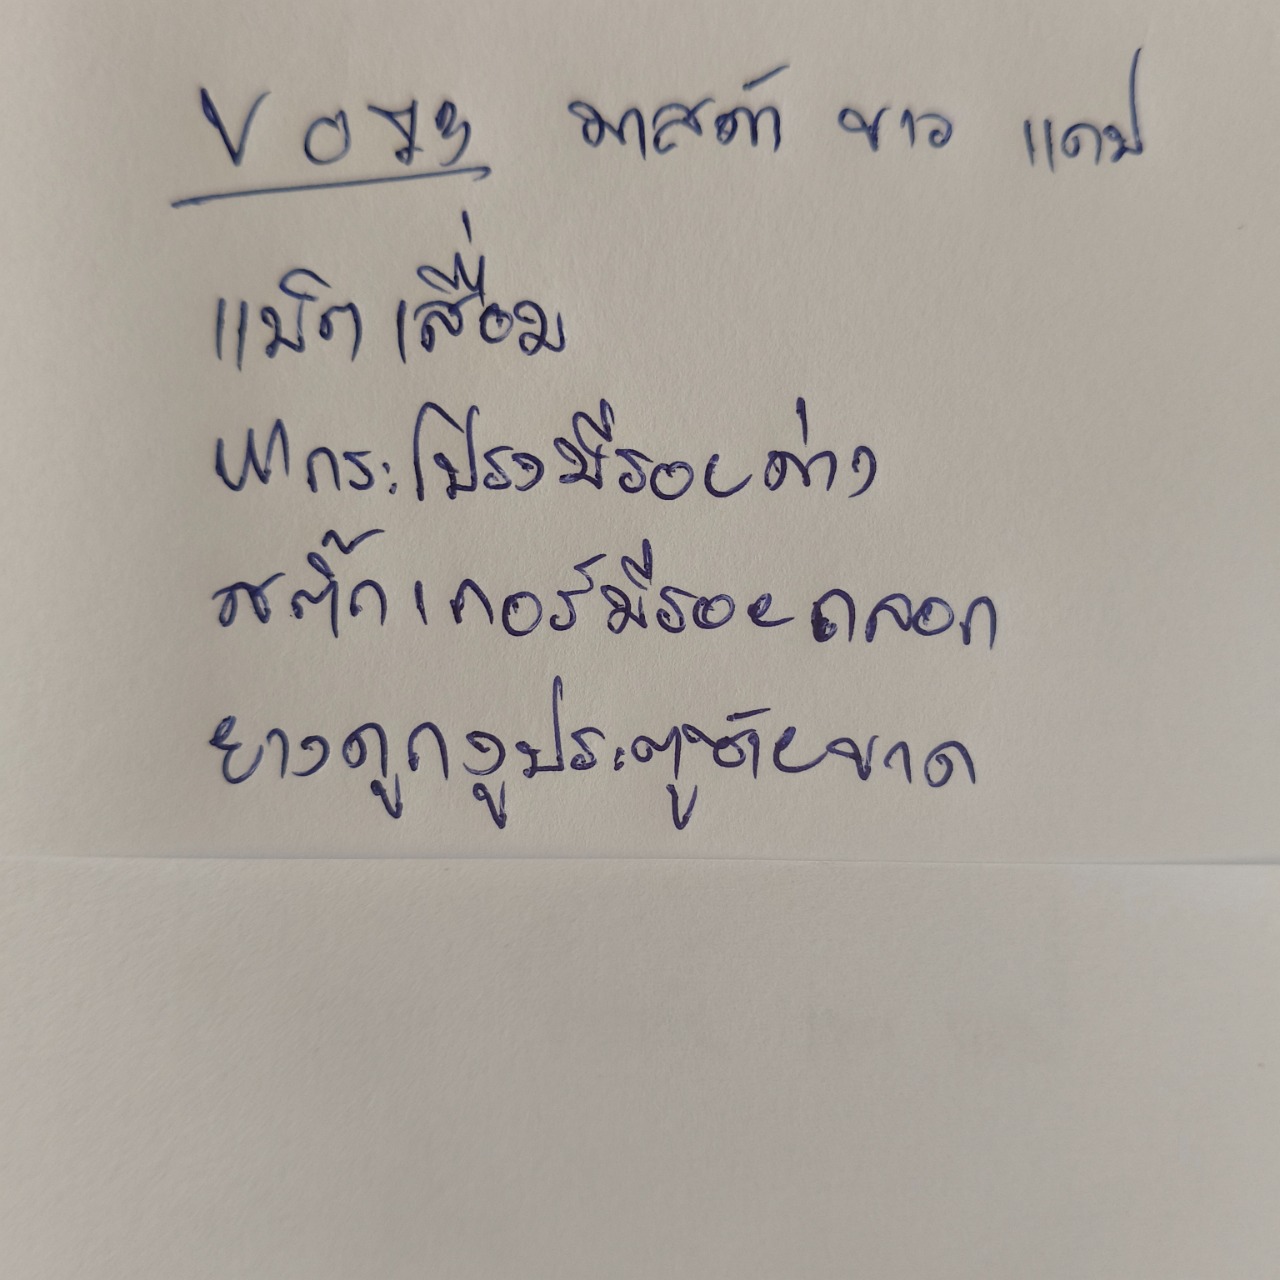 V073 มาสด้า ขาว แคป
แบ็ต เสื่อม
ฝากระโปรงมีรอยด่าง
สติ๊กเกอร์มีรอยถลอก
ยางดูกงูประตูซ้ายขาด